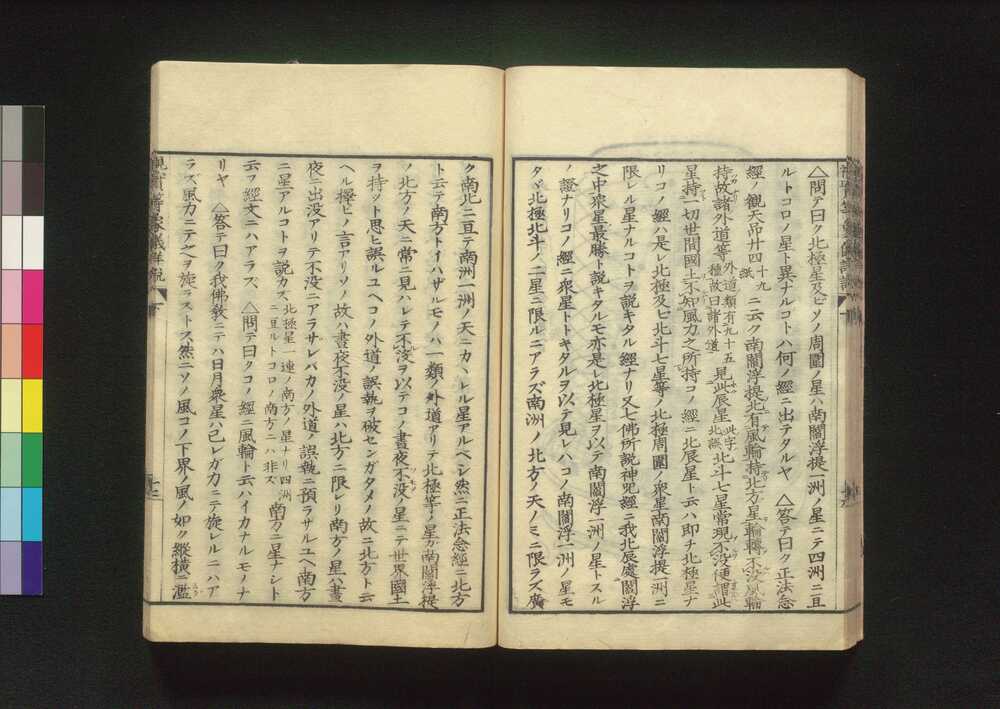 △問テ曰ク北極星及ヒソノ周圍ノ星ハ南閻浮提一洲ノ星ニテ四洲ニ亘
ルトコロノ星ト異ナルコトハ何ノ經ニ出テタルヤ △答テ曰ク正法念
經ノ觀天品廿四十九紙ニ云ク南閻浮提北有風輪持北方星輪轉不沒風輪
持故諸外道等外道類有九十五種故曰諸外道見此辰星此字北誤北斗七星常現不沒便謂此
星持一切世間國土不知風力之所持コノ經ニ北辰星ト云ハ即チ北極星ナ
リコノ經ハ是レ北極及ヒ北斗七星等ノ北極周圍ノ衆星南閻浮提一洲ニ
限レル星ナルコトヲ説キタル經ナリ又七佛所説神呪經ニ我北辰處閻浮
之中衆星最勝ト説キタルモ亦是レ北極星ヲ以テ南閻浮一洲ノ星トスル
ノ證ナリコノ經ニ衆星トトキタルヲ以テ見レハコノ南閻浮一洲ノ星モ
タヾ北極北斗ノ二星ニ限ルニアラズ南洲ノ北方ノ天ノミニ限ラズ廣
ク南北ニ亘テ南洲一洲ノ天ニカヽレル星アルヘシ然ニ正法念經ニ北方
ト云テ南方トイハザルモノハ一類ノ外道アリテ北極等ノ星カ南閻浮提
ノ北方ノ天ニ常ニ見ハレテ不沒ヲ以テコノ晝夜不沒ノ星ニテ世界國土
ヲ持ツト思ヒ誤ルユヘコノ外道ノ誤執ヲ破センガタメノ故ニ北方ト云
ヘル擇ヒノ言アリソノ故ハ晝夜不沒ノ星ハ北方ニ限レリ南方ノ星ハ晝
夜ニ出沒アリテ不沒ニアラサレバカノ外道ノ誤執ニ預ラサルユヘ南方
ニ星アルコトヲ説カズ北極星一連ノ南方ノ星ナリ四洲ニ亘ルトコロノ南方ニハ非ズ南方ニ星ナシト
云フ經文ニハアラス △問テ曰クコノ經ニ風輪ト云ハイカナルモノナ
リヤ △答テ曰ク我佛敎ニテハ日月衆星ハ己レガ力ニテ旋レルニハア
ラズ風力ニテ之ヲ旋ラストス然ニソノ風コノ下界ノ風ノ如ク縱橫ニ濫